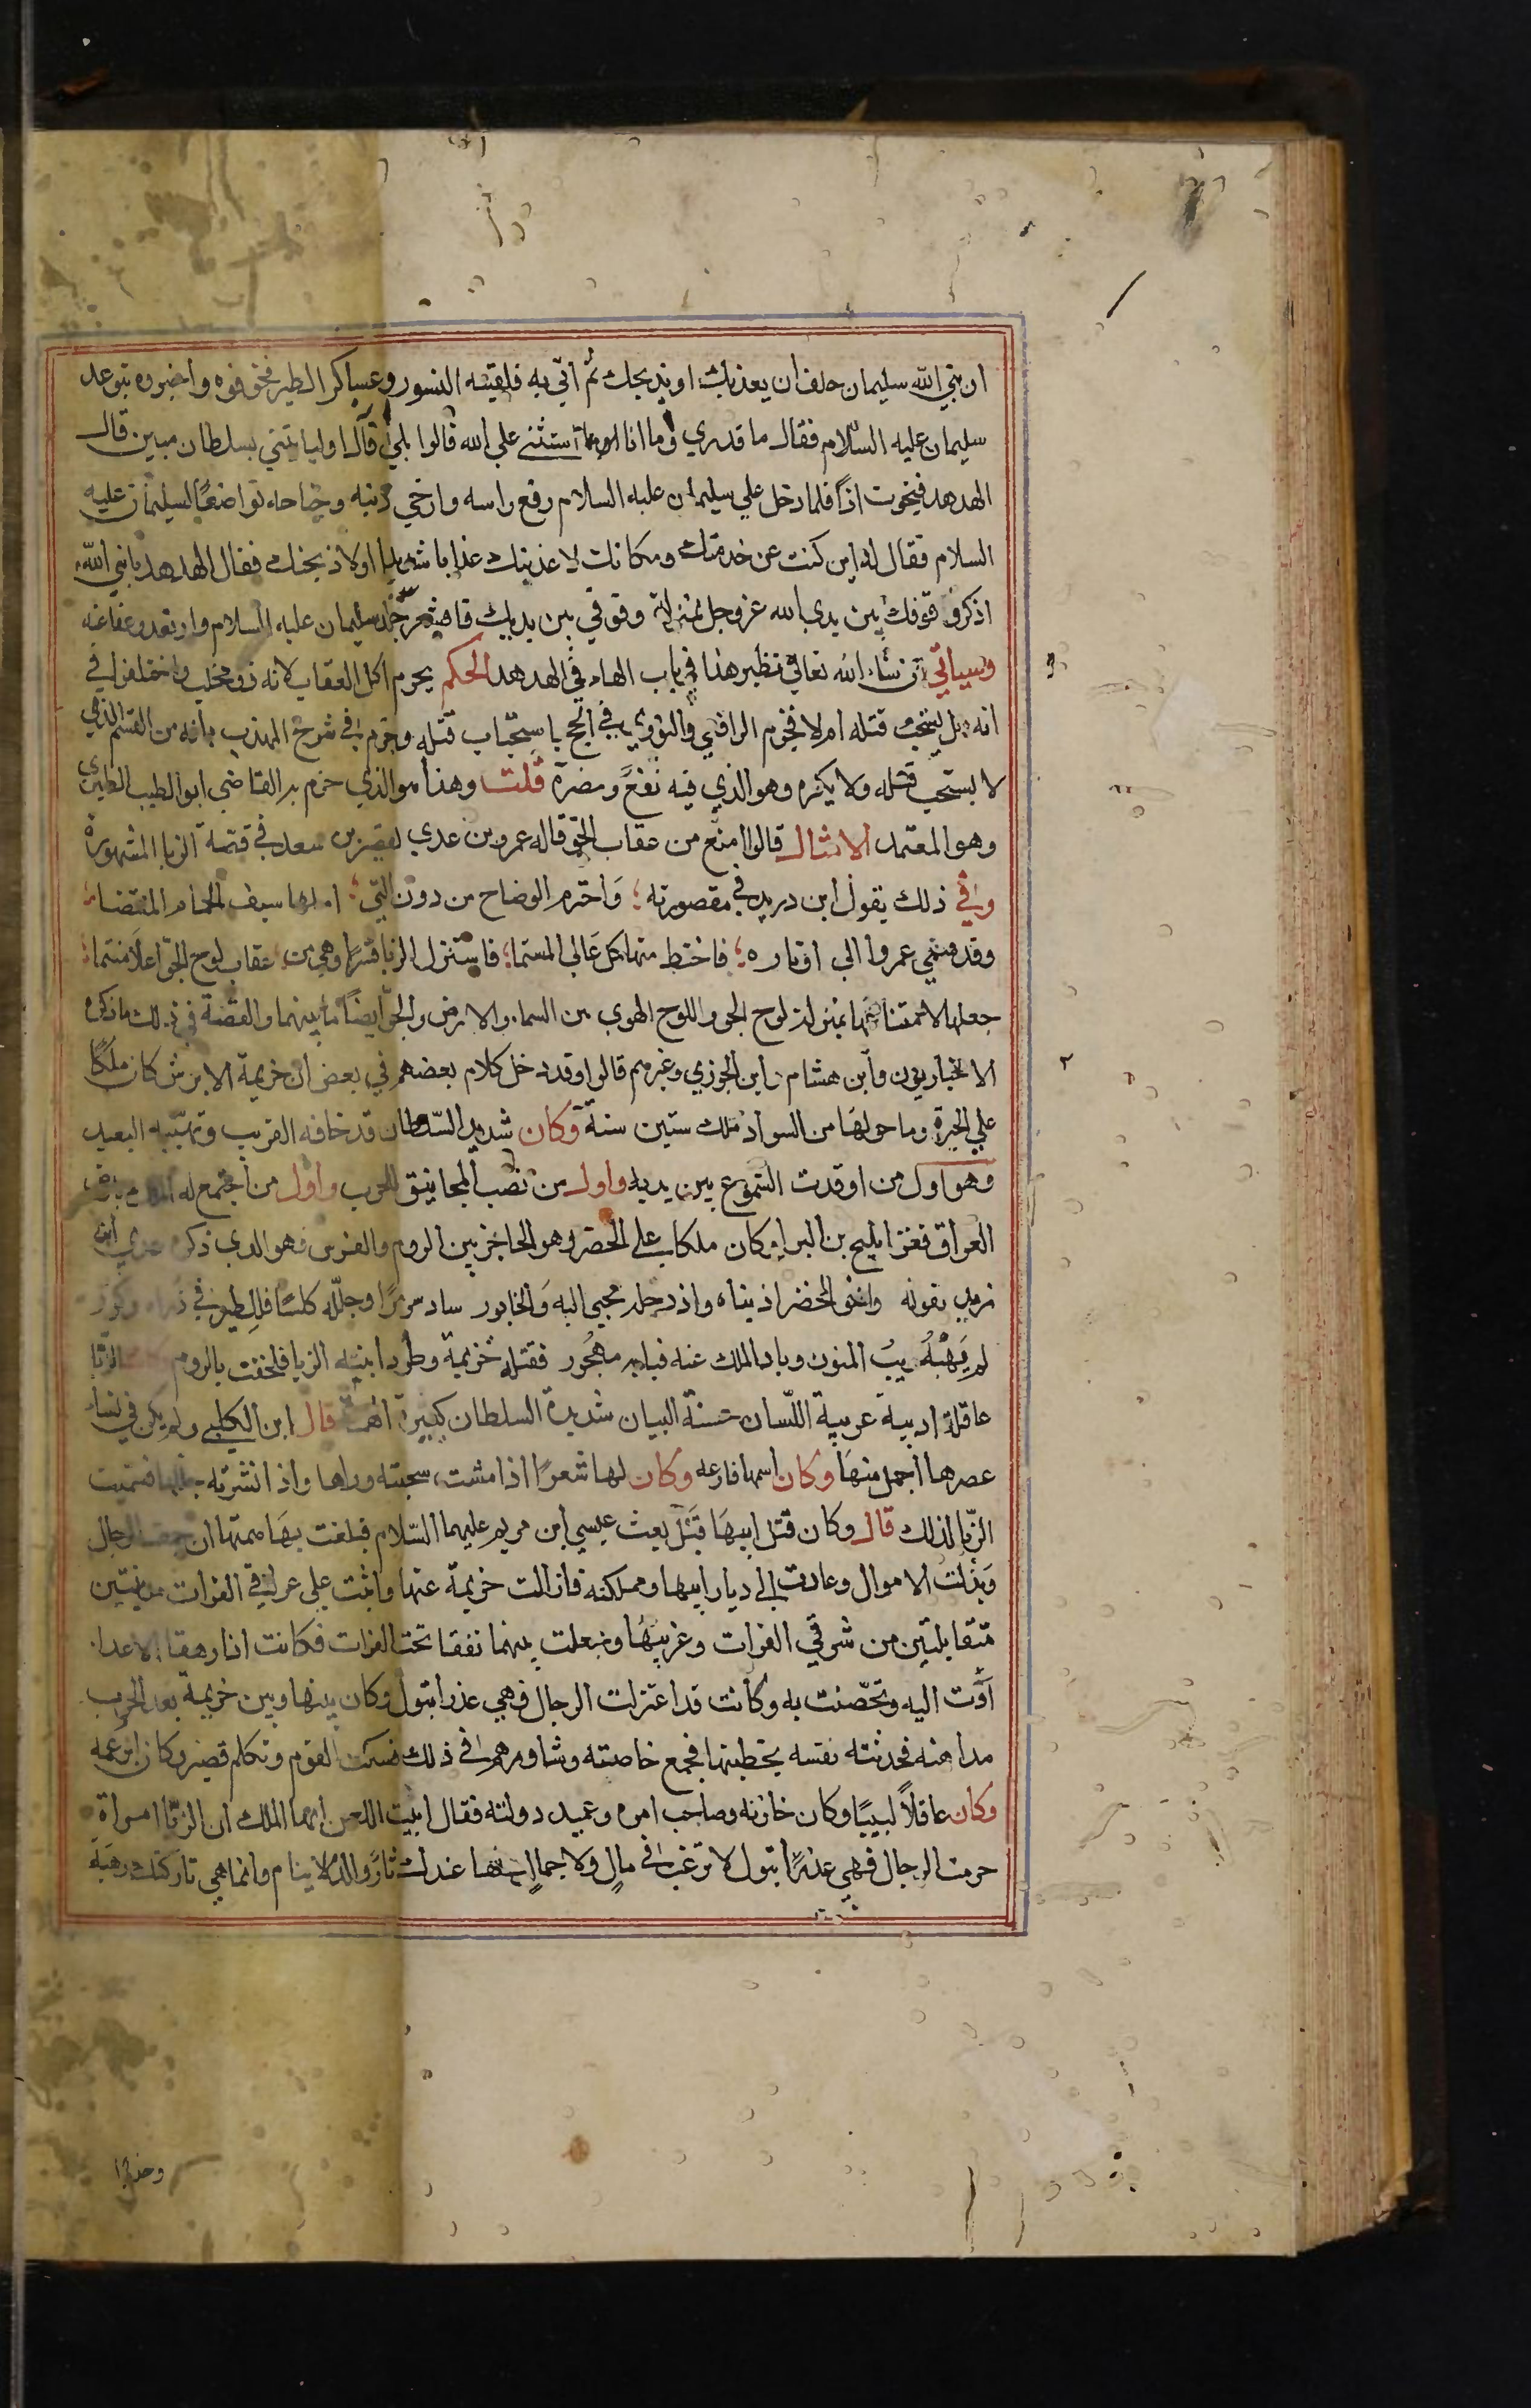 ان نبي الله سليمان حلف ان يعذبك او يذبحك ثم اتي به فلقيته النسور وعساكر الطير فخوفوه واخبروه بتوعد
سليمان عليه السلام فقال ما قدري وما انا اوما استثني علي الله قالوا بلي قال اوليا تيني بسلطان مبين قال
الهدهد فنجوت اذًا فلما دخل علي سليمان عليه السلام رفع راسه وارخي ذنبه وجناحه تواضعًا لسليمان عليه
السلام فقال له اين كنت عن خدمتك ومكانك لاعذبنك عذابا شديدا اولاذبحنك فقال الهدهد يا نبي الله
اذكر وقوفك بين يدي الله عز وجل بمنزلة وقوفي بين يديك فاقشعر جلد سليمان عليه السلام وارتعد وعفا عنه
وسياتي ان شاء الله تعالي نظير هذا في باب الهاء في الهدهد الحكم يحرم اكل العقاب لانه ذو مخلب واختلفوا في
انه هل يستحب قتله ام لا فجزم الرافعي والنووي في الحج باستحباب قتله وجزم في شرح المهذب بانه من القسم الذي
لا يستحب قتله ولا يكره وهو الذي فيه نفع ومضرة قلت وهذا هو الذي جزم به القاضي ابو الطيب الطبري
وهو المعتمد الامثال قالوا امنع من عقاب الجو قاله عمرو بن عدي لقصير بن سعد في قصة الزبا المشهورة
وفي ذلك يقول ابن دريد في مقصورته واخترم الوضاح من دون التي املها سيف الحمام المقتضا
وقد سمي عمرو الي اوتاره فاحتط منها كل عالي المستما فاستنزل الزبا قسرًا وهي من عقاب لوح الجو اعلا منتما
جعلها لامتناعها بمنزلة لوح الجو واللوح الهوي بين السماء والارض والجو ايضًا ما بينهما والقصة في ذلك ما ذكره
الاخباريون وابن هشام وابن الجوزي وغيرهم قالوا وقد دخل كلام بعضهم في بعض ان خزيمة الابرش كان ملكًا
علي الحيرة وما حولها من السواد ملك ستين سنة وكان شديد السلطان قد خافه القريب وتهيبه البعيد
وهو اول من اوقدت الشموع بين يديه واول من نصب المجانيق للحرب واول من اجتمع له الملك بارض
العراق فغزا مليح بن البرا وكان ملكا علي الحضر وهو الحاجز بين الروم والفرس وهو الذي ذكره عدي ابن
زيد بقوله واخو الحضر اذ بناه واذ دجلة تجبي اليه والخابور ساد مرمرًا وجلله كلسًا فللطير في ذراه وكور
لم يهبه ريب المنون وباد الملك عنه فبابه مهجور فقتله خزيمة وطرد ابنته الزبا فلحقت بالروم الزبا
عاقلة اديبة عربية اللسان حسنة البيان شديدة السلطان كبيرة الهمة قال ابن الكلبي ولم يكن في نساء
عصرها اجمل منها وكان اسمها فارعه وكان لها شعرًا اذا مشت سحبته وراها واذا نشرته جللها فسميت
الزبا لذلك قال وكان قتل ابيها قبل بعث عيسي ابن مريم عليهما السلام فبلغت بها همتها ان جمعت الرجال
وبذلت الاموال وعادت الي ديار ابيها ومملكته فازالت خزيمة عنها وابنت علي عراقي الفرات مدينتين
متقابلتين من شرقي الفرات وغربيها وجعلت بينهما نفقا تحت الفرات فكانت اذا رهقها الاعداء
آوت اليه وتحصنت به وكانت قد اعتزلت الرجال فهي عذرا بتول وكان بينها وبين خزيمة بعد الحرب
مداهنه فحدثته نفسه بخطبتها فجمع خاصته وشاورهم في ذلك فسكت القوم وتكلم قصير وكان ابن عمه
وكان عاقلاً لبيبًا وكان خازنه وصاحب امره وعميد دولته فقال ابيت اللعن ايها الملك ان الزبا امراة
حرمت الرجال فهي عذرًا بتول لا ترغب في مالٍ ولا جمالٍ ولها عندك ثار والدم لا ينام وانما هي تاركتك رهبة